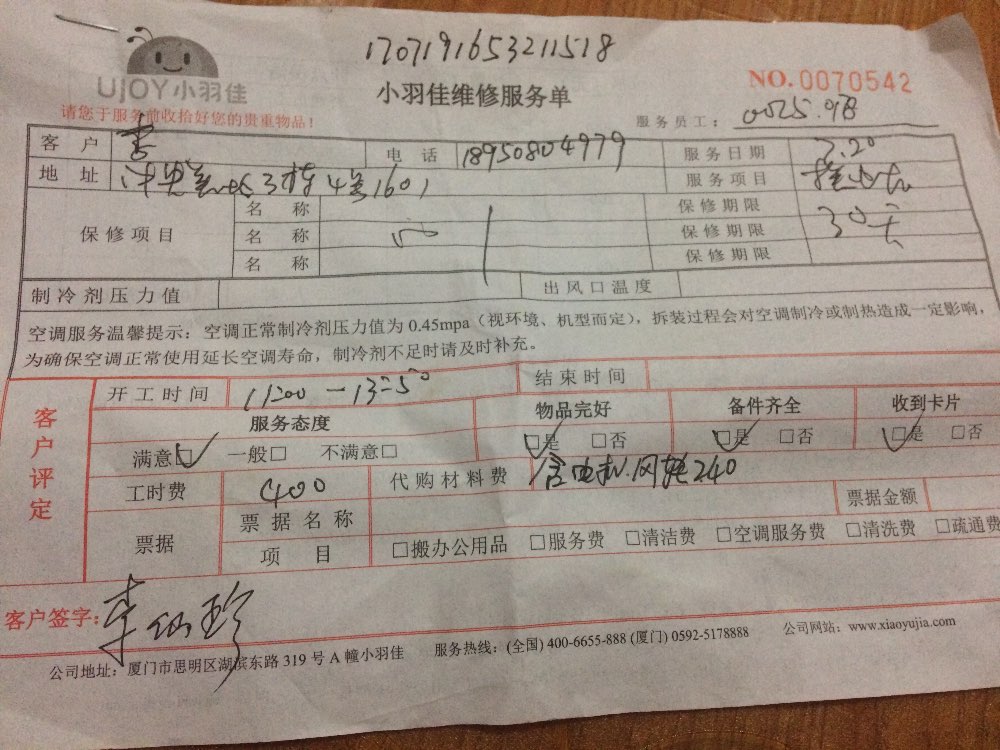 170719165321 1518
UJOY小羽佳
小羽佳维修服务单
NO.0070542
请您于服务前收拾好您的贵重物品！
服务员工：0025.
客 户 李 电 话 18950804979 服务日期 7.20
地 址 3栋4号1601 服务项目
保修项目 名 称 保修期限
名 称 保修期限 30天
名 称 保修期限
制冷剂压力值 出风口温度
空调服务温馨提示：空调正常制冷剂压力值为 0.45mpa（视环境、机型而定），拆装过程会对空调制冷或制热造成一定影响，
为确保空调正常使用延长空调寿命，制冷剂不足时请及时补充。
客户评定
开工时间 11:00－13:50 结束时间
服务态度 物品完好 备件齐全 收到卡片
满意□ 一般□ 不满意□ □是 □否 □是 □否 □是 □否
工时费 400 代购材料费 含电机.风轮240
票据 票据名称 票据金额
项 目 □搬办公用品 □服务费 □清洁费 □空调服务费 □清洗费 □疏通费
客户签字：李仙珍
公司地址：厦门市思明区湖滨东路 319 号 A 幢小羽佳 服务热线：(全国) 400-6655-888 (厦门) 0592-5178888 公司网站：www.xiaoyujia.com